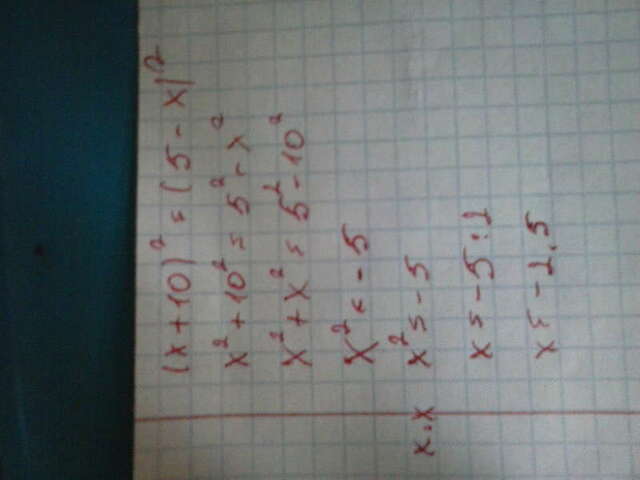 (x+10)² = (5-x)²
x²+10² = 5²-x²
x²+x² = 5²-10²
x² = -5
x.x x² = -5
x = -5:2
x = -2,5